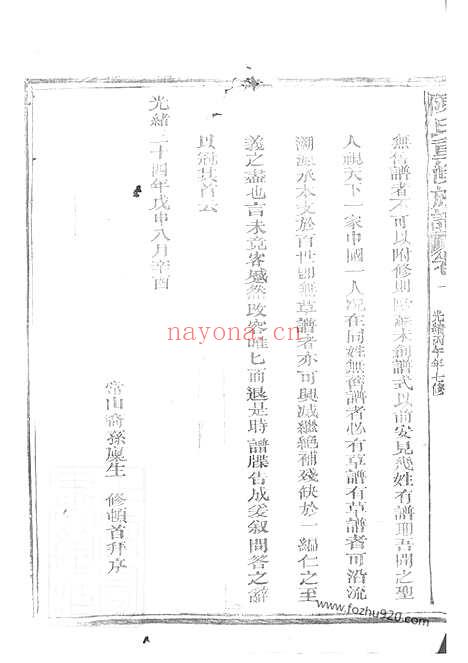 氏重修族譜 卷一 光緒丙午年七修
無舊譜者不可以附修則歐蘇未創譜式以前安見幾姓有譜耶吾聞之聖
人視天下一家中國一人况在同姓無舊譜者必有草譜有草譜者可沿流
溯源承本支於百世即無草譜者亦可興滅繼絶補殘缺於一編仁之至
義之盡也言未竟客蹙然改容唯匕而退是時譜牒告成爰叙問答之辭
以冠其首云
光緒二十四年戊申八月辛酉
常山裔孫廩生 修頓首拜序
nayona.cn
www.fozhu920.com